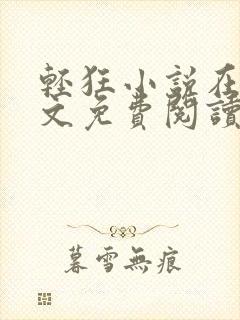 輕狂小說在
文免費閱讀
暮雪無痕